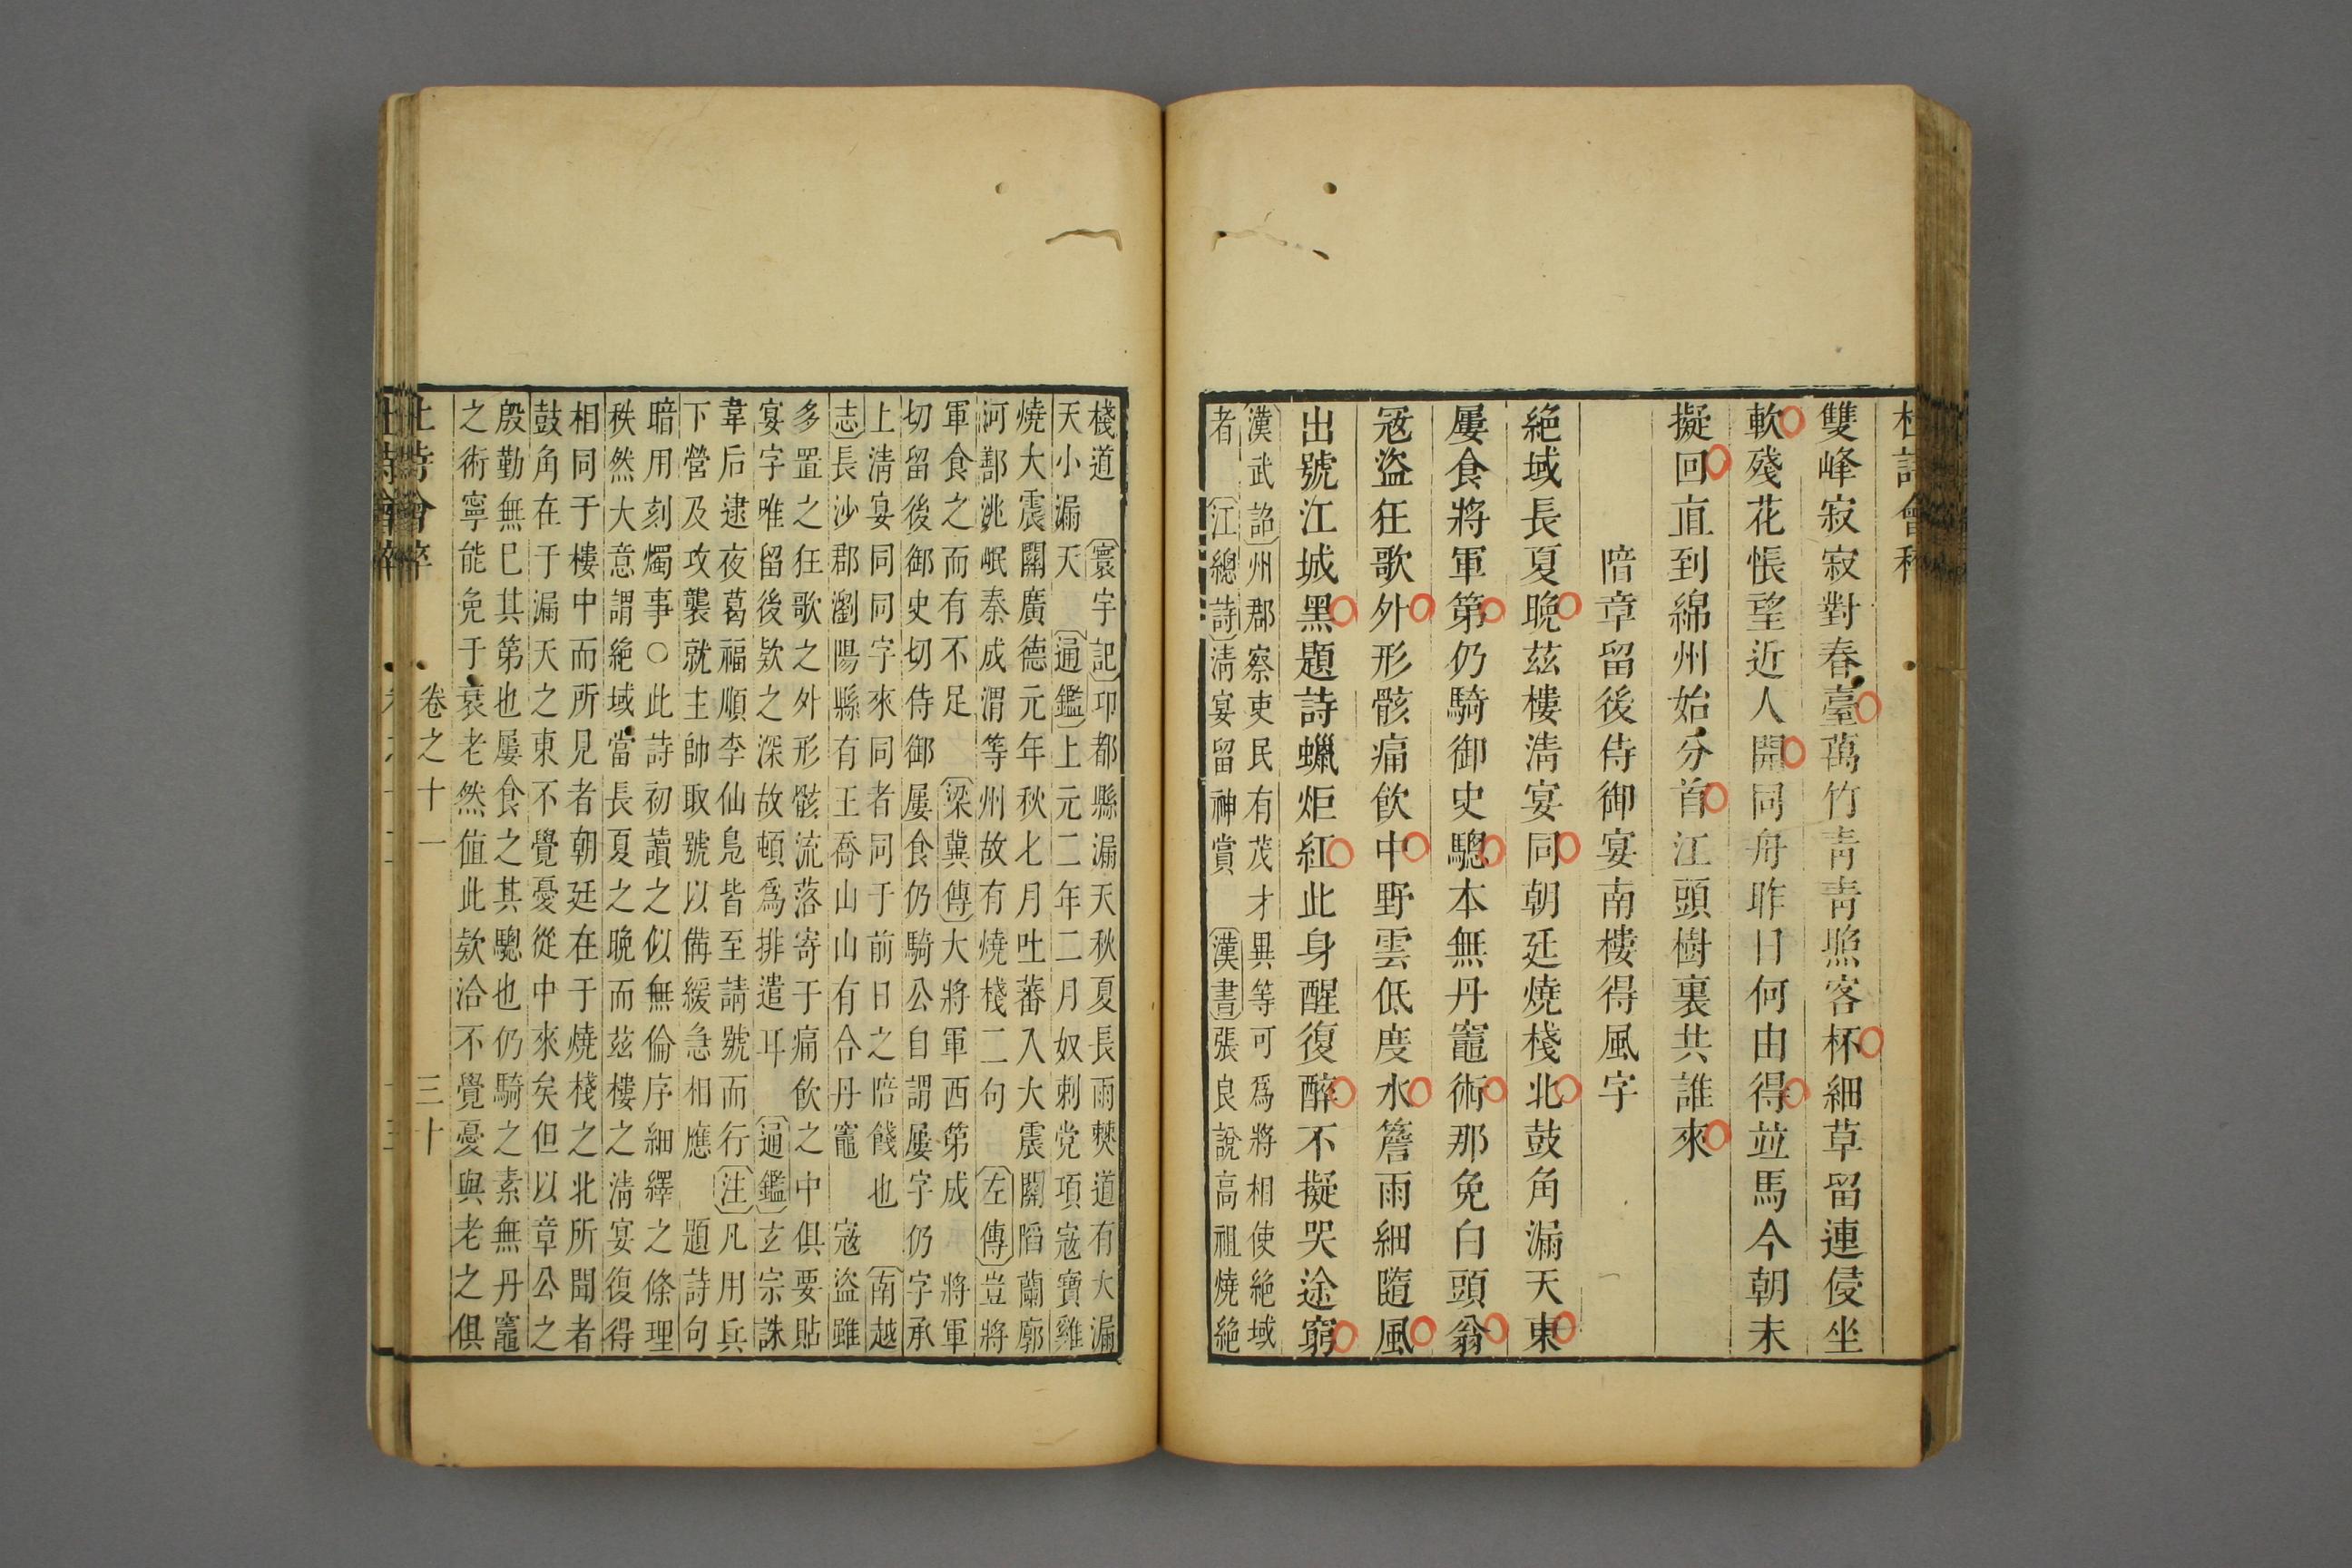 雙峰寂寂對春臺萬竹靑靑照客杯細草留連侵坐
軟殘花悵望近人開同舟昨日何由得並馬今朝未
擬回直到綿州始分首江頭樹裏共誰來
陪章留後侍御宴南樓得風字
絕域長夏晚茲樓淸宴同朝廷燒棧北鼓角漏天東
屢食將軍第仍騎御史驄本無丹竈術那免白頭翁
寇盜狂歌外形骸痛飲中野雲低度水簷雨細隨風
出號江城黑題詩蠟炬紅此身醒復醉不擬哭途窮
漢武詔州郡察吏民有茂才異等可爲將相使絕域
者 江總詩淸宴留神賞 漢書張良說高祖燒絕
棧道 寰宇記卭都縣漏天秋夏長雨僰道有大漏
天小漏天 通鑑上元二年二月奴刺党項寇寶雞
燒大震關廣德元年秋七月吐蕃入大震關陷蘭廓
河鄯洮岷秦成渭等州故有燒棧二句 左傳豈將
軍食之而有不足 梁冀傳大將軍西第成 將軍
切留後御史切侍御屢食仍騎公自謂屢字仍字承
上淸宴同同字來同者同于前日之陪餞也 南越
志長沙郡瀏陽縣有王喬山山有合丹竈 寇盜雖
多置之狂歌之外形骸流落寄于痛飲之中俱要貼
宴字唯留後欵之深故頓爲排遣耳 通鑑玄宗誅
韋后逮夜葛福順李仙鳧皆至請號而行注凡用兵
下營及攻襲就主帥取號以備緩急相應 題詩句
暗用刻燭事○此詩初讀之似無倫序細繹之條理
秩然大意謂絕域當長夏之晚而茲樓之淸宴復得
相同于樓中而所見者朝廷在于燒棧之北所聞者
鼓角在于漏天之東不覺憂從中來矣但以章公之
殷勤無已其第也屢食之其驄也仍騎之素無丹竈
之術寧能免于衰老然值此欵洽不覺憂與老之俱
卷之十一 三十